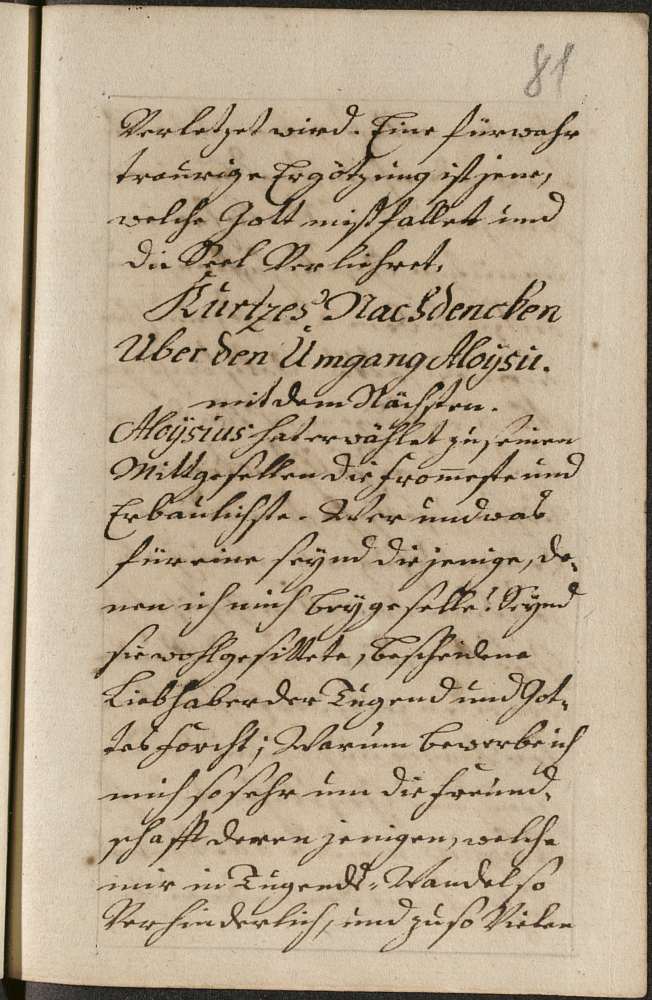 81
Verletzet wird. Eine fürwahr
traurige Ergötzung ist jene,
welche Gott mißfallet und
die Seel Verliehret.
Kurtzes Nachdencken
Uber den Umgang Aloysii.
mit dem Nächsten.
Aloysius hat erwählet zu seinen
Mittgesellen die from̅este und
Erbaulichste. Wer und was
für eine seynd diejenige, de-
nen ich mich beygeselle? Seynd
sie wohlgesittete, bescheidene
Liebhaber der Tugend und Got-
tes Forcht; Warum bewerbe ich
mich so sehr um die Freund-
schafft deren jenigen, welche
mir in Tugends-Wandel so
Verhinderlich, und zu so Vielen